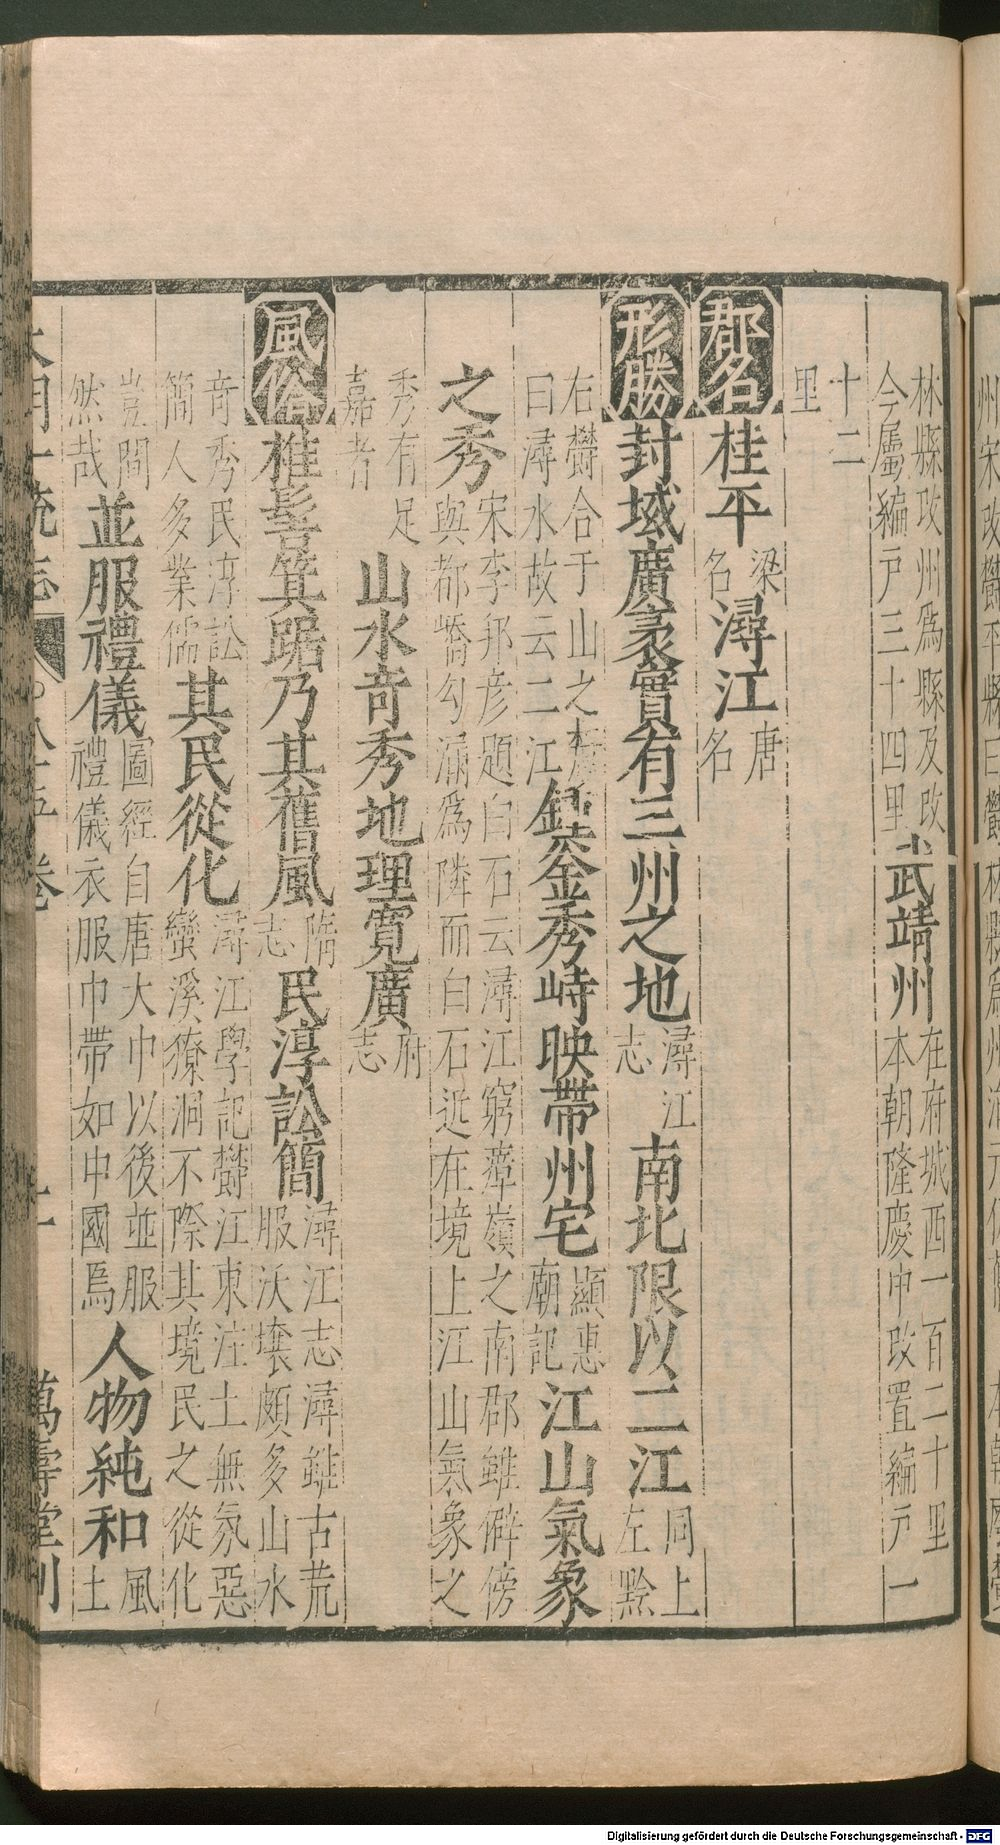 林縣改州爲縣及改
今屬編戸三十四里
武靖州
在府城西一百二十里
本朝隆慶中改置編戸一
十二
里
郡名
桂平
梁
名
潯江
唐
名
形勝
封域廣袤實有三州之地
潯江
志
南北限以二江
同上
左黔
右鬱合于山之
曰潯水故云二江
釜秀峙映帶州宅
顯惠
廟記
江山氣象
之秀
宋李邦彦題白石云潯江窮嶺之南郡雖僻傍
與都嶠勾漏爲隣而白石近在境上江山氣象之
秀有足
嘉者
山水奇秀地理寬廣
府
志
風俗
椎髻箕踞乃其舊風
隋
志
民淳訟簡
潯江志潯雖古荒
服沃壤頗多山水
奇秀民淳訟
簡人多業儒
其民從化
潯江學記鬱江東注土無氛惡
蠻溪獠洞不際其境民之從化
豈間
然哉
並服禮儀
圖經自唐大中以後並服
禮儀衣服巾帶如中國焉
人物純和
風
土
大明一統志
八十五卷
十一
萬壽堂刊
Digitalisierung gefördert durch die Deutsche Forschungsgemeinschaft - DFG